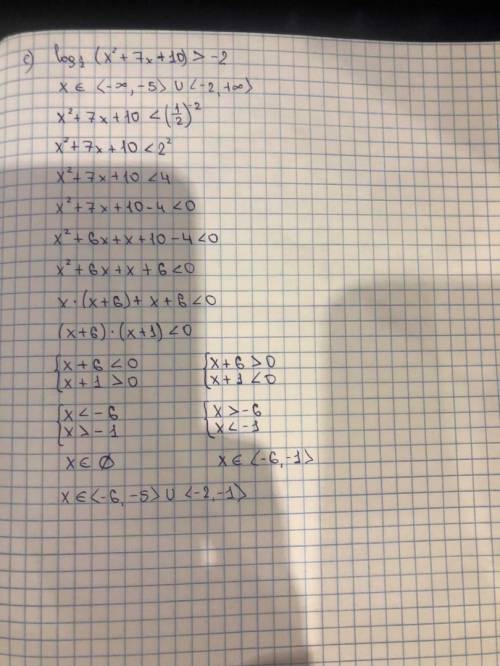 c) log₁ (x² + 7x + 10) > -2
x ∈ ⟨-∞, -5⟩ ∪ ⟨-2, +∞⟩
x² + 7x + 10 < (1/2)⁻²
x² + 7x + 10 < 2²
x² + 7x + 10 < 4
x² + 7x + 10 - 4 < 0
x² + 6x + x + 10 - 4 < 0
x² + 6x + x + 6 < 0
x · (x + 6) + x + 6 < 0
(x + 6) · (x + 1) < 0
{ x + 6 < 0 { x + 6 > 0
{ x + 1 > 0 { x + 1 < 0
{ x < -6 { x > -6
{ x > -1 { x < -1
x ∈ ∅ x ∈ ⟨-6, -1⟩
x ∈ ⟨-6, -5⟩ ∪ ⟨-2, -1⟩